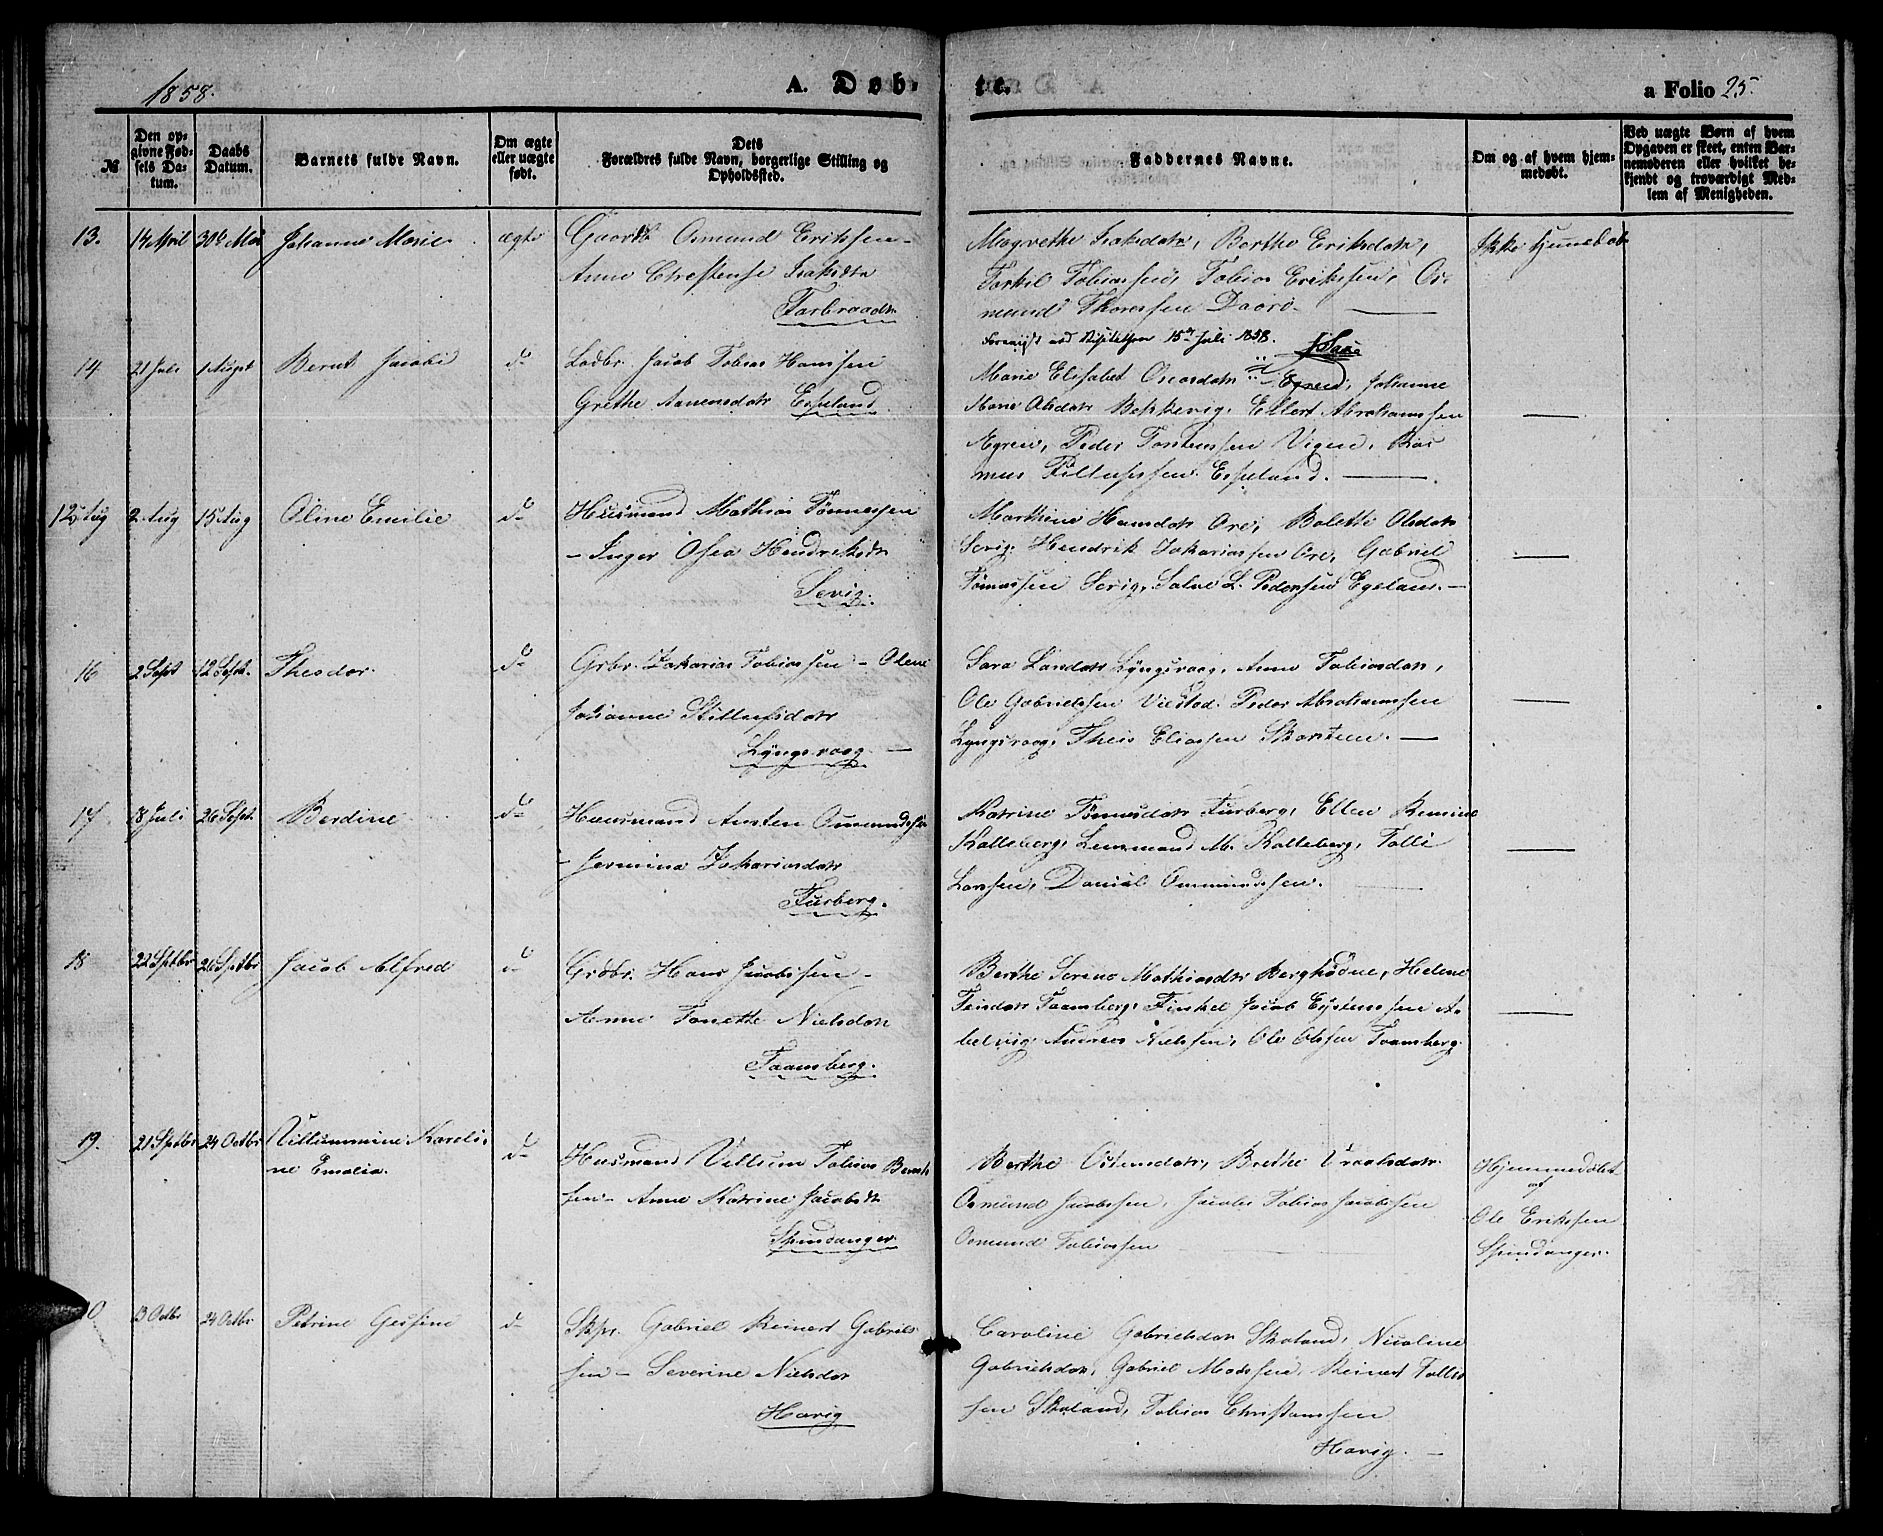 1858.
A. Døb-
te.
a Folio 25.
№
Den op-
givne Fød-
sels Da-
tum.
Daabs
Datum.
Barnets fulde Navn.
Om ægte
eller uægte
født.
Dets
Forældres fulde Navn, borgerlige Stilling og
Opholdssted.
Faddernes Navne.
Om og af hvem hjem-
medøbt.
Ved uægte Børn af hvem
Opgaven er skeet, enten Bar-
nemoderen eller hvilket be-
kjendt og troværdigt Med-
lem af Menigheden.
13.
14 April
30t Mai
Johanne Marie
ægte
Gaardb Osmund Eriksen -
Anne Christense Isaksdtr
Farbraadt
Magrethe Isaksdatr, Berthe Eriksdatr,
Torkil Tobiassen, Tobias Erikssen, Os-
mund Thoressen Daarø.
Ikke hjemedøb
Foreviist ved Visitatsen 15de Juli 1858.
14
21 Juli
1 August
Bernt Jacobi
do
Lodbr. Jacob Tobias Hanssen
Grethe Aanensdatr Espeland
Marie Elisabet Oneasdatr Egreid, Johanne
Marie Olsdatr Bekkevig, Ellert Abrahamssen
Egreid, Peder Torkelssen Vigen, Ras
mus Stillufssen Espeland.
12 Aug
2 Aug
15 Aug
Oline Emilie
do
Husmand Mathias Tønnessen
- Inger Osea Hendriksdtr
Sevig.
Marthine Hansdatr Ore, Bolette Olsdatr
Sevig. Hendrik Zakariassen Ore, Gabriel
Tønnessen Sevig, Salve L. Pedersen Egeland. -
16
2 Sept
12 Sept.
Theodor.
do
Grbr. Zakarias Tobiassen - Olene
Johanne Stillufsdatr
Lyngsvaag.
Sara Larsdatr Lyngsvaag, Anne Tobiasdatr,
Ole Gabrielssen Viestad. Peder Abrahamssen
Lyngsvaag, Theis Eliassen Skarstein.
17.
18 Juli
26 Sept.
Berdine
do
Huusmand Austen Omundssen
- Jermina Zakariasdatr
Furberg.
Katrine Tønnesdatr Furberg, Ellen Remine
Kalleberg, Lemmand M. Kalleberg, Tolli
Larssen, Daniel Ommundssen.
18
22 Septbr
26 Septbr
Jacob Alfred
do
Grdbr. Hans Jacobssen -
Anne Tonette Nielsdatr
Taamberg.
Berthe Serine Mathiasdtr Berghødne, Helene
Teisdatr Taamberg, Finkel Jacob Eystenssen A-
belvig. Andreas Nielssen, Ole Olssen Taamberg
19.
21 Septbr
24 Octbr
Villummine Karoli-
ne Emalia.
do
Husmand Villum Tobias Bernt
sen - Anne Katrine Jacobsdtr
Spindanger
Berthe Ostensdatr, Brethe Vraalsdatr
Osmund Jacobssen, Jacob Tobias Jacobssen
Osmund Tobiassen
Hjemmedøbt
af
Ole Erikssen
Spindanger.
13 Octbr
24 Octbr
Petrine Gesine
do
Skpr. Gabriel Reinert Gabriels
sen - Severine Nielsdatr
Havig
Caroline Gabrielsdatr Skoland, Nicoline
Gabrielsdatr, Gabriel Madssen, Reinert Tollis
sen Skoland, Tobias Christenssen
Havig. -